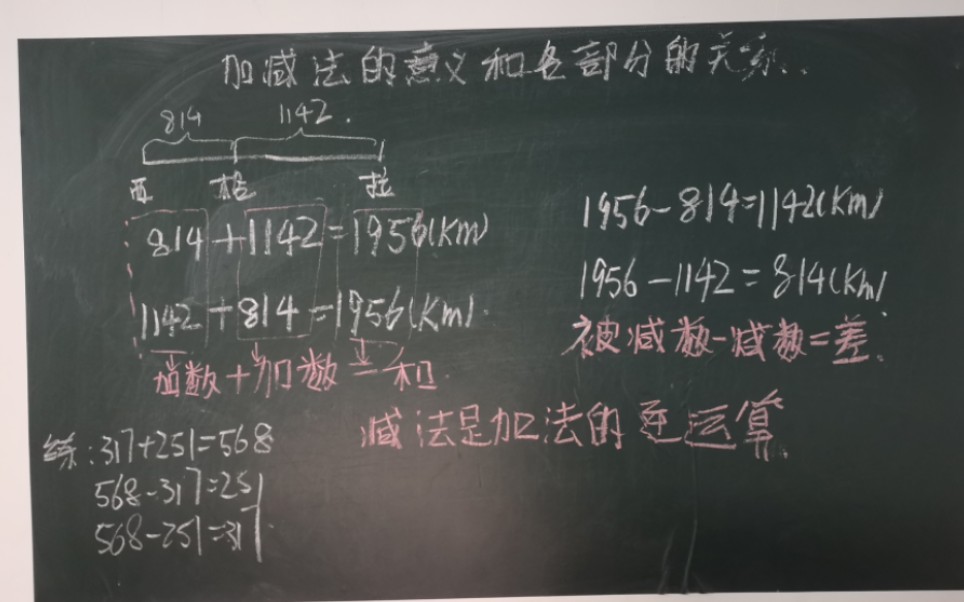 加减法的意义和各部分的关系.
814 1142.
西 格 拉
814+1142=1956(Km)
1142+814=1956(Km).
加数+加数=和.
1956-814=1142(Km)
1956-1142=814(Km)
被减数-减数=差.
减法是加法的逆运算
练:317+251=568
568-317=251
568-251=317.